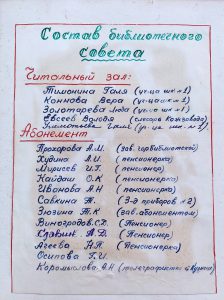 Состав библиотечного
совета
Читальный зал:
Тимонина Галя (уч-ца шк №1)
Коннова Вера (уч-ца шк №1)
Золотарева Лида (уч-ца шк №1)
Евсеев Володя (слесарь
Галя (уч-ца шк №1)
Абонемент
Прохорова А.М. (зав. горбиблиотекой)
Худина А.И. (пенсионерка)
И.Г. (пенсионер)
Кайдаш О.К (пенсионерка)
Иванова А.Н (пенсионерка)
Савкина Т. (З-д приборов №2)
Зюзина Т.К (зав. абонементом)
Виноградов С.Д. (Пенсионер)
А.Д. (Пенсионер)
Агеева Н.П. (Пенсионерка)
Осипова Г.И.
Коромыслова А.Н (телеграфистка